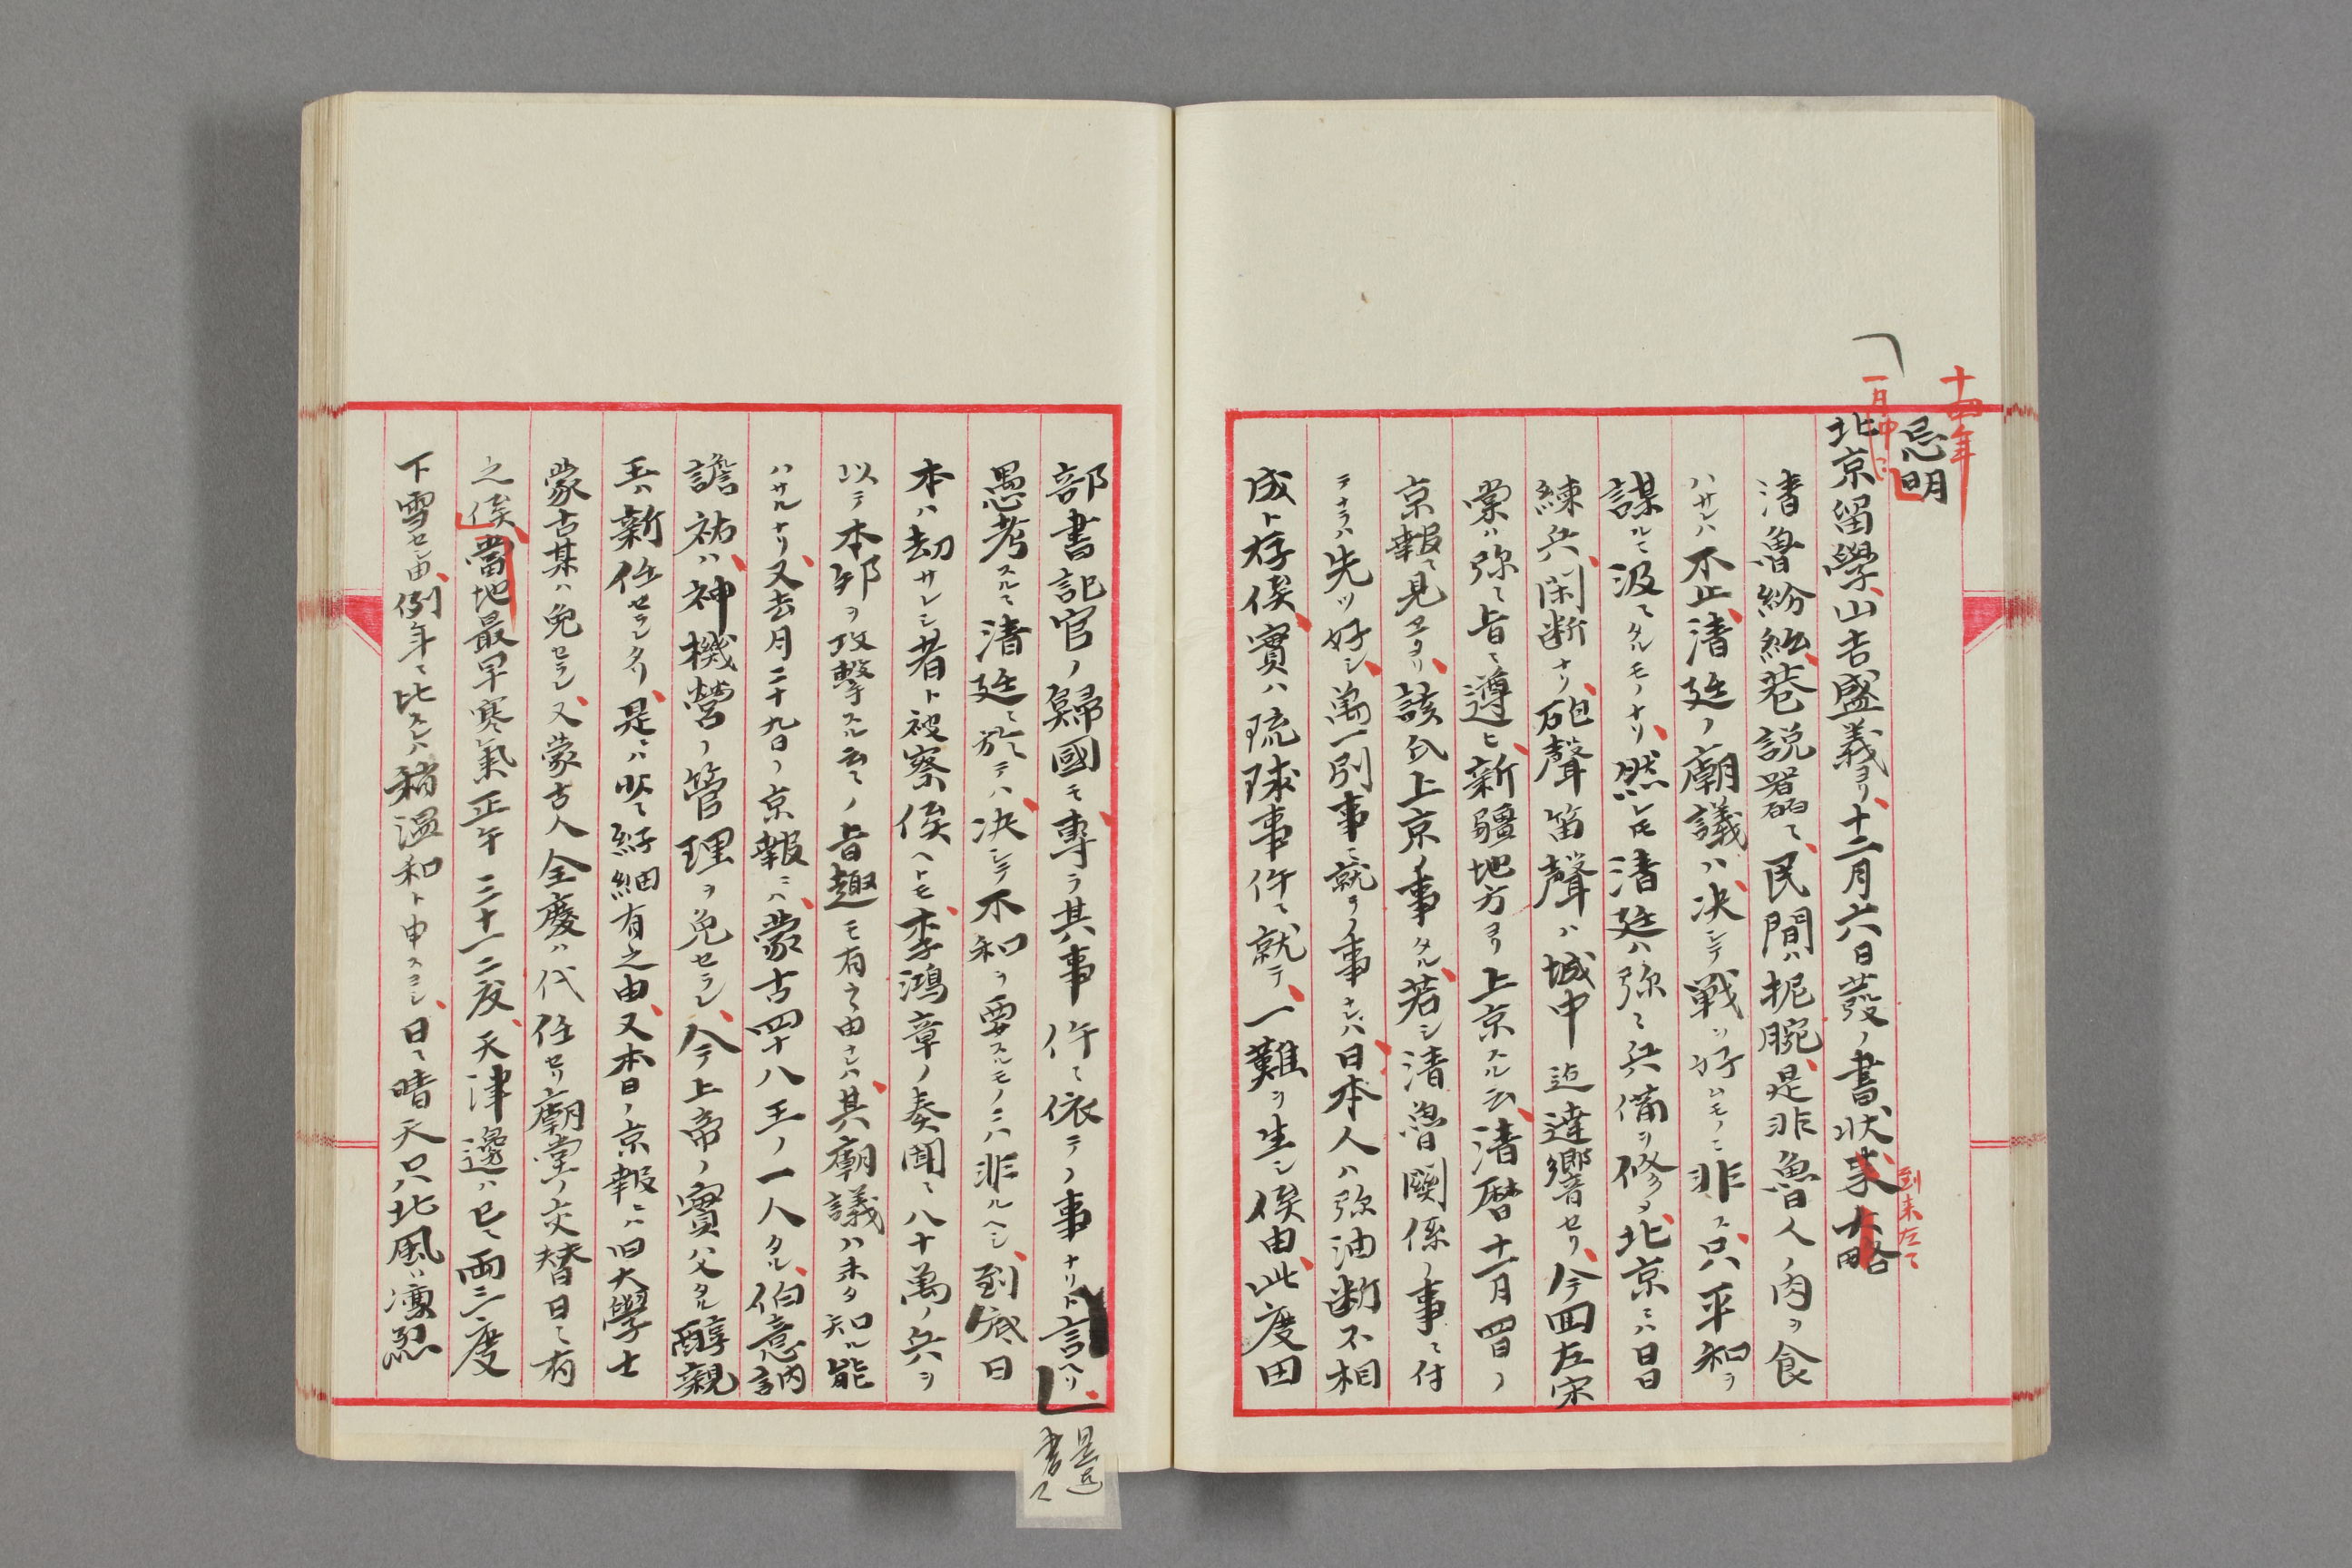 十四年
忌明
一月中ニ
北京留學山吉盛義ヨリ十二月六日發ノ書状來大略
到来左ニ
清魯紛紜巷説囂々民間ハ扼腕是非魯人ノ肉ヲ食
ハサレハ不止清廷ノ廟議ハ决シテ戰ヲ好ムモノニ非ス只平和ヲ
謀ルニ汲々タルモノナリ然レ𪜈清廷ハ弥々兵備ヲ修メ北京ニハ日日
練兵間断ナリ砲聲笛聲ハ城中ニ達響セリ今回左宗
棠ハ弥々旨ニ遵ヒ新疆地方ヨリ上京スル云清暦十一月四日ノ
京報ニ見ヱタリ該氏上京ノ事タル若シ清魯関係ノ事ニ付
テナラハ先ツ好シ萬一別事ニ就テノ事ナレハ日本人ハ弥油断不相
成ト存候實ハ琉球事件ニ就テ一難ヲ生シ候由此度田
部書記官ノ歸國モ專ラ其事件ニ依テノ事ナリト言ヘリ
是迄
書ス
愚考スルニ清廷ニ於テハ决シテ不和ヲ要スルモノニハ非ルヘシ到底日
本ハ刧サレシ者ト被察候ヘトモ李鴻章ノ奏聞ニ八十萬ノ兵ヲ
以テ本邦ヲ攻撃スル云々ノ旨趣モ有之由ナレハ其廟議ハ未タ知ル能
ハサルナリ又去月二十九日ノ京報ニハ蒙古四十八王ノ一人タル伯意訥
謨祜ハ神機營ノ管理ヲ免セラレ今上帝ノ實父タル醇親
王ハ新任セラレタリ是ニハ些ト紆細有之由又本日ノ京報ニハ旧大學士
蒙古某ハ免セラレ又蒙古人全慶ハ代任セリ廟堂ノ交替日ニ有
之候當地最早寒氣正午三十一二度天津邊ハ已ニ両三度
下雪セシ由例年ニ比スレハ稍温和ト申スヨシ日々晴天只北風ハ凛烈